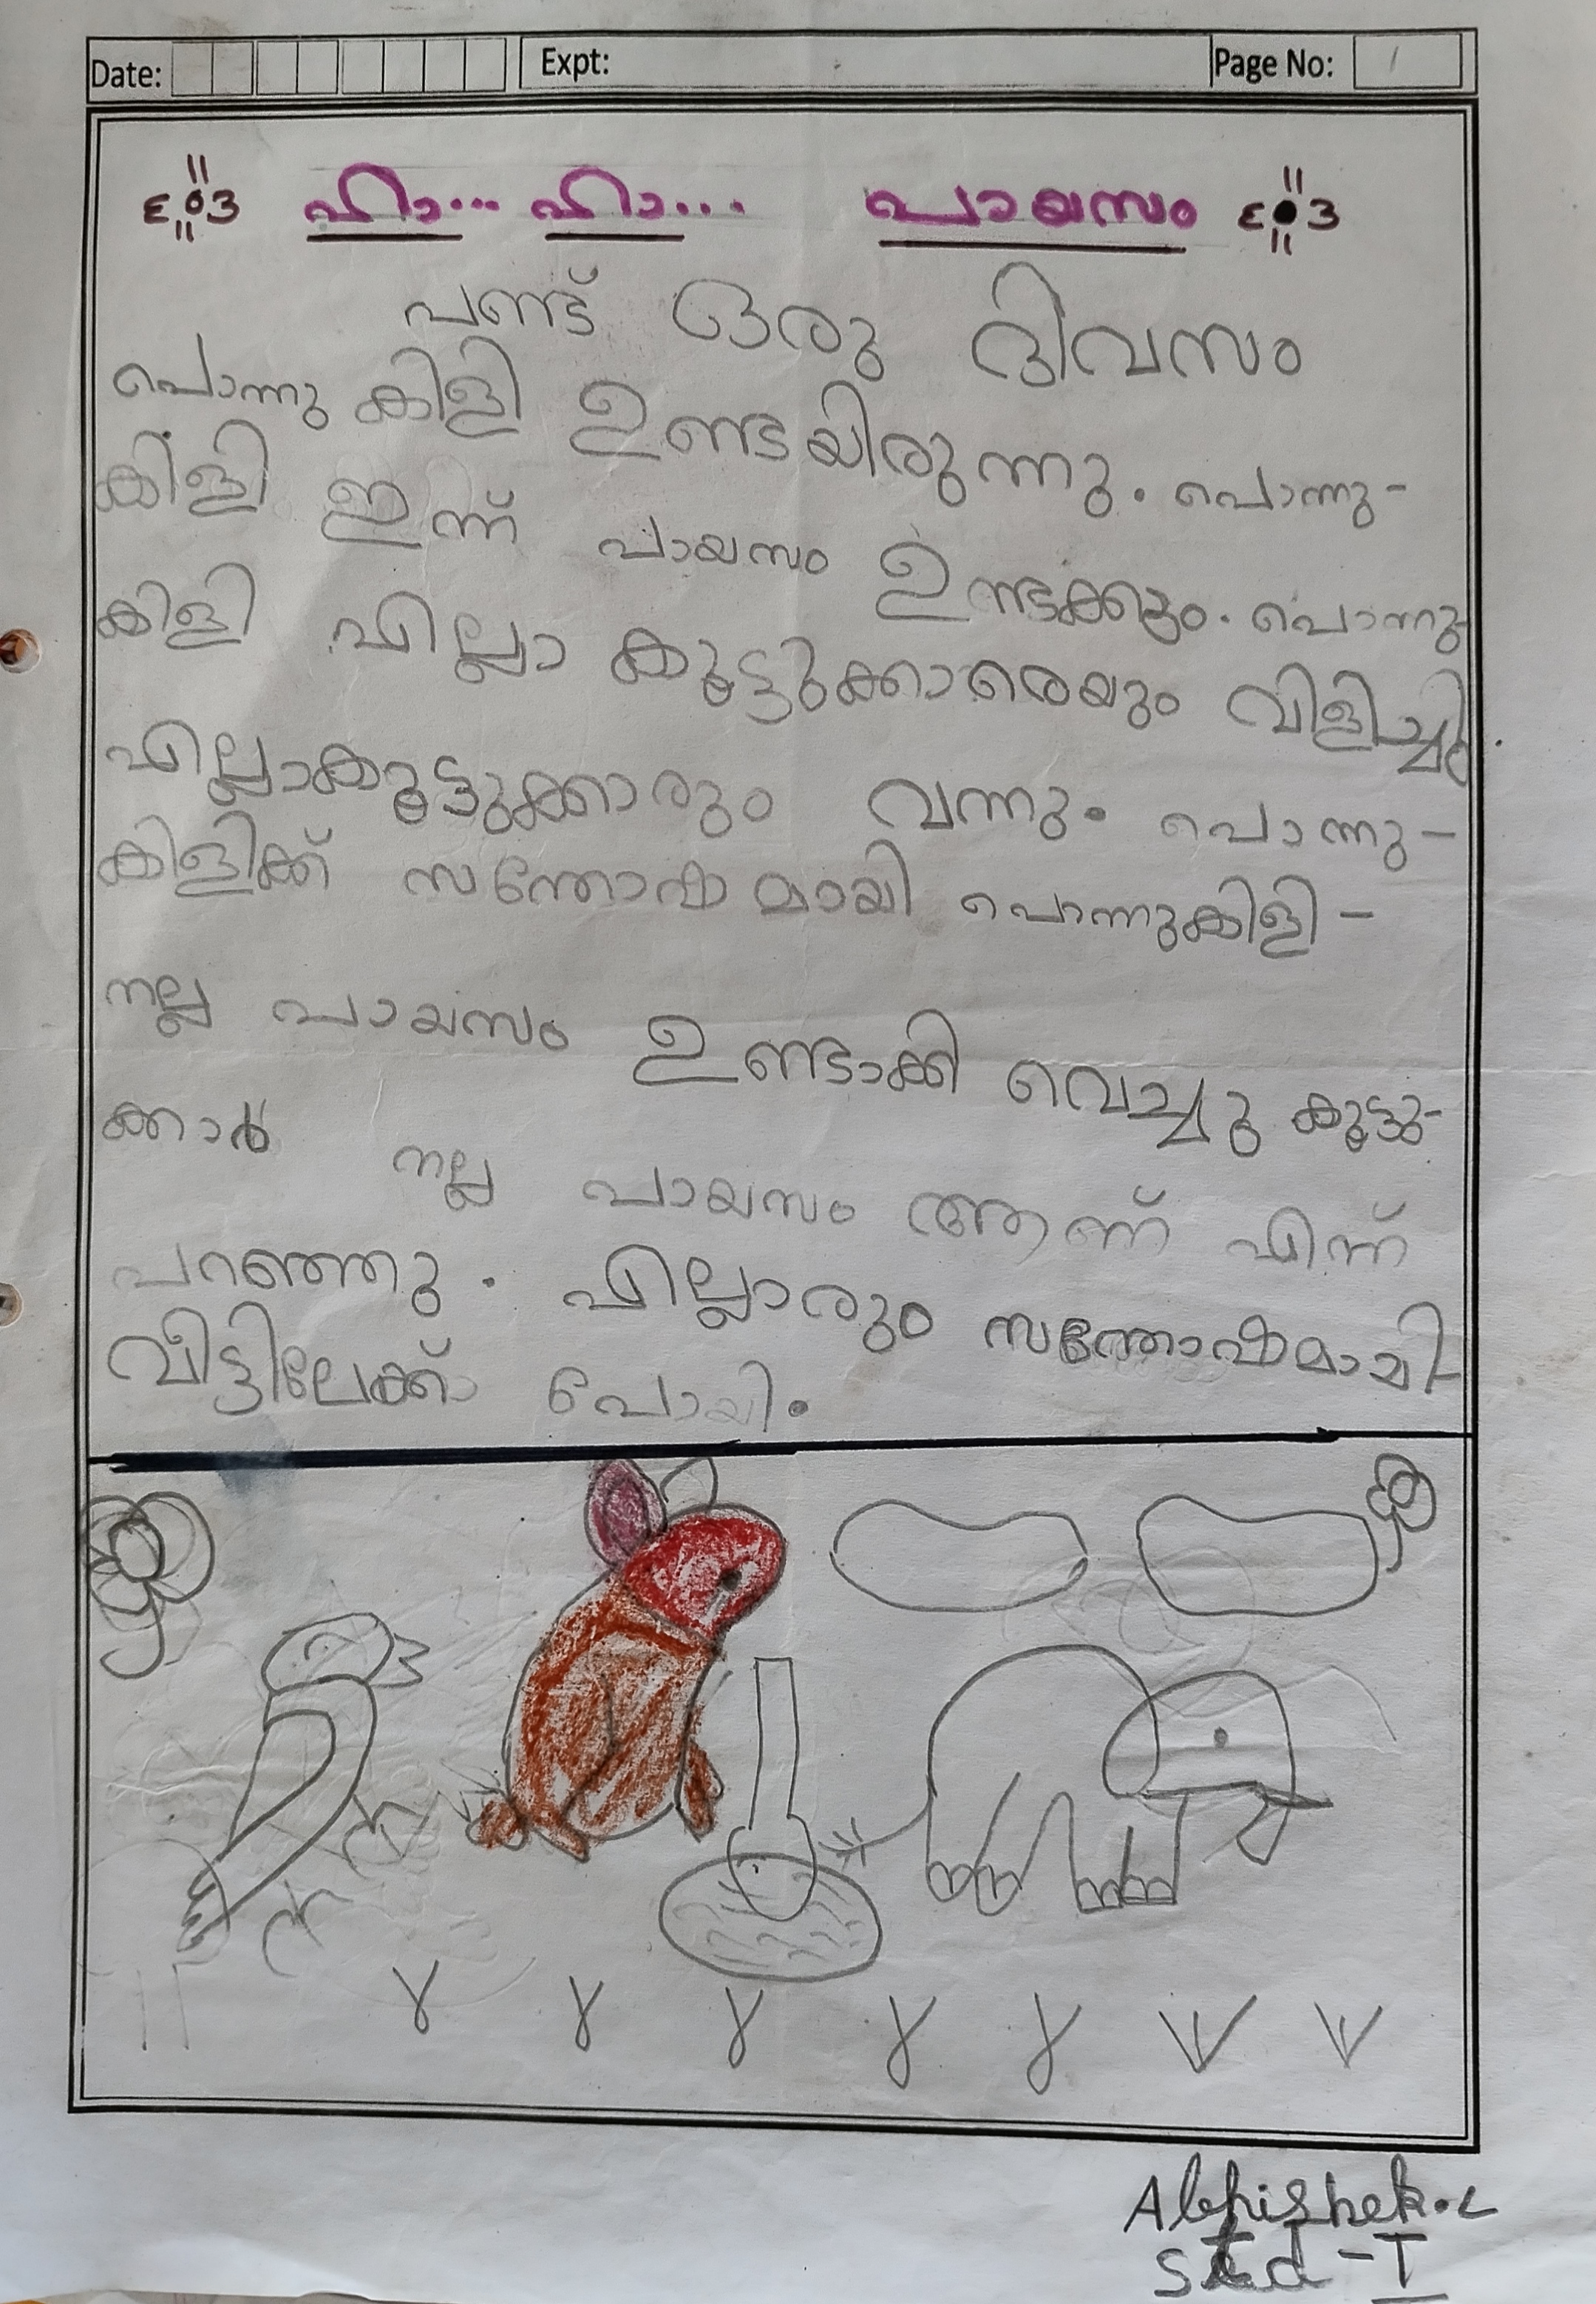 Date: Expt: Page No: 1
ഹാ... ഹാ... പായസം
പണ്ട് ഒരു ദിവസം
പൊന്നു കിളി ഉണ്ടയിരുന്നു. പൊന്നു-
കിളി ഇന്ന് പായസം ഉണ്ടക്കും. പൊന്നു-
കിളി എല്ലാ കൂട്ടുക്കാരെയും വിളിച്ചു.
എല്ലാകൂട്ടുക്കാരും വന്നു. പൊന്നു-
കിളിക്ക് സന്തോഷമായി പൊന്നുകിളി-
നല്ല പായസം ഉണ്ടാക്കി വെച്ചു കൂട്ടു-
ക്കാർ നല്ല പായസം ആണ് എന്ന്
പറഞ്ഞു. എല്ലാരും സന്തോഷമായി-
വീട്ടിലേക്ക് പോയി.
Abhishek.c
Std-I